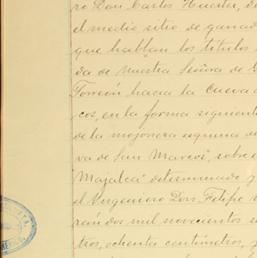 ro Don Carlos Huester, de
el medio sitio de ganad
que hablan los títulos
da de Nuestra Señora de G
Torreón hacia la Cueva d
cos, en la forma siguient
de la mojonera esquina d
va de San Marcos, sobre
Majalca" determinado y
el Yngeniero Don Felipe
rán dos mil novecientos s
tros, ochenta centímetros, y